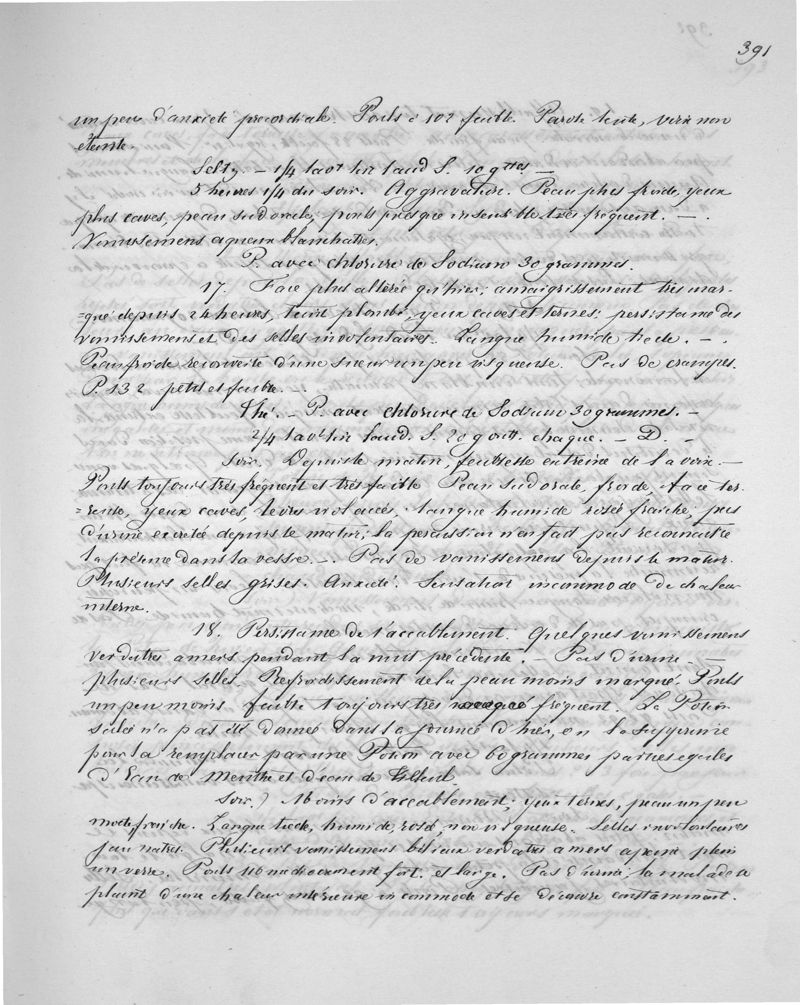 391
un peu d'anxieté precordiale. Pouls à 102 faible. Parole lente, voix non
éteinte.
Seltz. – 1/4 lavt tir laud S. 10 gttes –
5 heures 1/4 du soir. Aggravation. Peau plus froide, yeux
plus caves, peau sudorale, pouls presque insensible très fréquent. – .
Vomissemens aqueux blanchatres.
P. avec chlorure de Sodium 30 grammes.
17. Face plus altérée qu'hier; amaigrissement très mar-
=qué depuis 24 heures, teint plombé, yeux caves et ternes: persistance des
vomissemens et des selles involontaires. Langue humide tiede. – .
Peau froide recouverte d'une sueur un peu visqueuse. Pas de crampes.
P. 132 petit et faible. –
Thé. – P. avec chlorure de Sodium 30 grammes. –
2/4 lavt tir Laud. S. 20 goutt. chaque. – D. –
Soir. Depuis le matin, faiblesse extreme de la voix. –
Pouls toujours très fréquent et très faible Peau sudorale, froide, face ter-
=reuse, yeux caves, levres violacées, langue humide rosée fraiche, peu
d'urine excretée depuis le matin; la percussion n'en fait pas reconnaitre
la présence dans la vessie. – . Pas de vomissemens depuis le matin.
Plusieurs selles grises. Anxieté. Sensation incommode de chaleur
interne.
18. Persistance de l'accablement. Quelques vomissemens
verdatres amers pendant la nuit précedente. – Pas d'urine. –
plusieurs selles. Refroidissement de la peau moins marqué. Pouls
un peu moins faible toujours très fréquent. La Potion
salée n'a pas été donnée dans la journée d'hier, on la supprime
pour la remplacer par une Potion avec 60 grammes parties egales
d'Eau de Menthe et d'eau de Tilleul.
Soir.) Moins d'accablement; yeux ternes, peau un peu
moite, fraiche. Langue tiede, humide, rosé, non visqueuse. Selles involontaires
jaunatres. Plusieurs vomissemens bilieux verdatres amers a peine plein
un verre. Pouls 110 mediocrement fort et large. Pas d'urine; la malade se
plaint d'une chaleur intérieure incommode et se decouvre constamment.